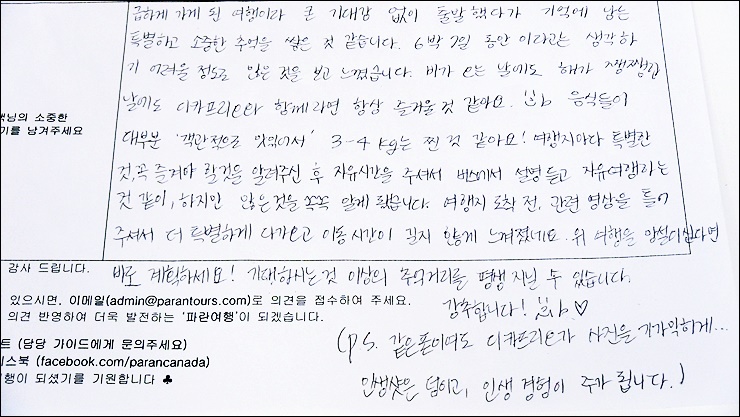 급하게 가게 된 여행이라 큰 기대감 없이 출발했다가 기억에 남는
특별하고 소중한 추억을 쌓은 것 같습니다. 6박 7일 동안 이라고는 생각하
기 어려울 정도로 많은 것을 보고 느꼈습니다. 비가 오는 날에도 해가 쨍쨍한
날에도 디카프리오와 함께라면 항상 즐거울 것 같아요. b 음식들이
객님의 소중한
기를 남겨주세요
대부분 '객관적으로 맛있어서' 3-4 kg는 찐 것 같아요! 여행지마다 특별한
것, 꼭 즐겨야 할것을 알려주신 후 자유시간을 주셔서 버스에서 설명 듣고 자유여행하는
것 같이, 하지만 많은것을 쏙쏙 알게 됐습니다. 여행지 도착 전, 관련 영상을 틀어
주셔서 더 특별하게 다가오고 이동시간이 길지 않게 느껴졌네요. 위 여행을 망설이신다면
감사 드립니다.
바로 계획하세요! 기대하시는 것 이상의 추억거리를 평생 지닐 수 있습니다.
있으시면, 이메일(admin@parantours.com)로 의견을 접수하여 주세요.
강추합니다! b ♡
의견 반영하여 더욱 발전하는 '파란여행'이 되겠습니다.
트 (담당 가이드에게 문의주세요)
(ps. 같은폰이여도 디카프리오가 사진을 기가막히게...
이스북 (facebook.com/parancanada)
여행이 되셨기를 기원합니다 ♣
인생샷은 덤이고, 인생 경험이 주가 됩니다.)